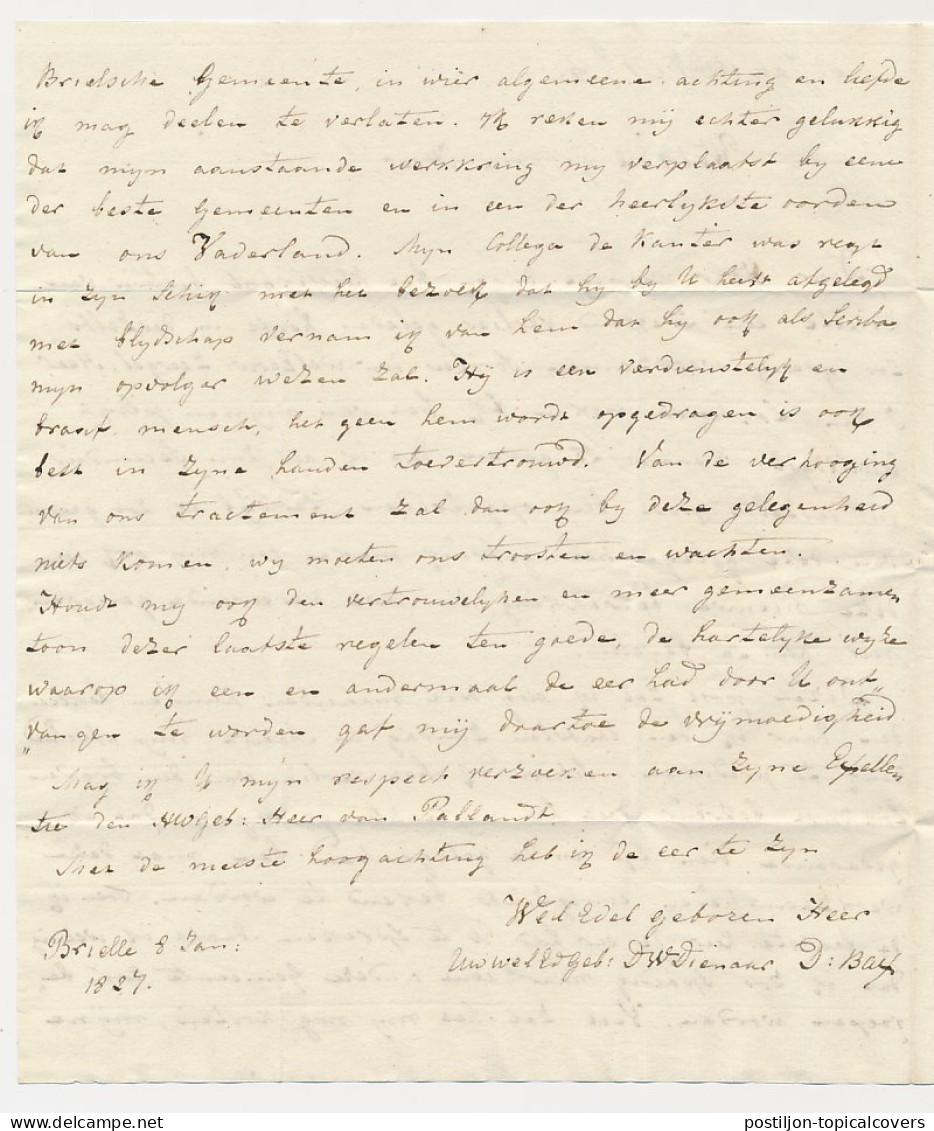 Brielsche Gemeente, in wier algemeene achting en liefde
ik mag deelen te verlaten. Ik reken mij echter gelukkig
dat mijn aanstaande werkkring my verplaatst by eene
der beste Gemeenten en in een der heerlykste oorden
van ons Vaderland. Myn Collega de Kanter was regt
in zyn schik met het bezoek dat hy by U heeft afgelegd
met blydschap vernam ik van hem dat hy ook als Scriba
myn opvolger wezen zal. Hy is een verdienstelyk en
braaf mensch, het geen hem wordt opgedragen is ook
best in zyne handen toevertrouwd. Van de verhooging
van ons tractement zal dan ook by deze gelegenheid
niets komen, wy moeten ons troosten en wachten.
Houdt my ook den vertrouwelyken en meer gemeenzamen
toon dezer laatste regelen ten goede, de hartelyke wyze
waarop ik een en andermaal de eer had door U ont„
„vangen te worden gaf mij daartoe de vrijmoedigheid
Mag ik U mijn respect verzoeken aan Zyne Exellen
tie den HWGeb: Heer van Pallandt.
Met de meeste hoogachting heb ik de eer te zyn
Wel Edel geboren Heer
Brielle 8 Jan: UwWelEdGeb: DWDienaar D: Bax
1827.
postiljon-topicalcovers